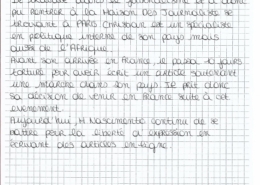 se trouvait dans le journalisme et a donc
pu rentrer à la Maison des Journalistes se
trouvant à PARIS Christian est un spécialiste
en politique interne de son pays mais
aussi de l'Afrique.
Avant son arrivée en France, il passa 10 jours
torturé pour avoir écrit un article soutenant
une marche dans son pays. Il prit donc
sa décision de venir en France suite à cet
evenement.
Aujourd'hui, M Nascimento continu de se
battre pour la liberté d'expression en
écrivant des articles en ligne.